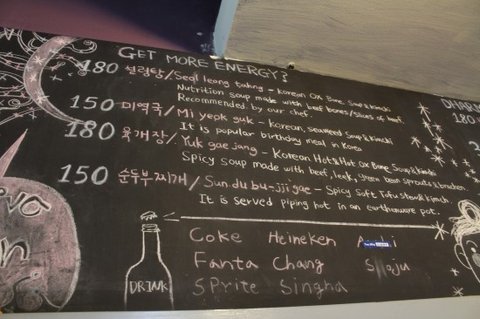 GET MORE ENERGY?
180 설렁탕/Seol leong tahng - Korean Ox Bone Soup & kimchi
Nutrition soup made with beef bones/slices of beef.
Recommended by our chef.
DHARMA
150 미역국/Mi yeok guk - Korean, seaweed Soup & kimchi
180
It is popular birthday meal in Korea
180 육개장/Yuk gae jang - Korean Hot & Hot Ox Bone Soup & kimchi
Spicy soup made with beef, leek, green bean sprouts & bracken
150 순두부찌개/Sun du bu-jji gae - Spicy Soft Tofu stew & kimchi.
It is served piping hot in an earthenware pot.
Coke Heineken
Fanta Chang Shoju
Sprite Singha
DRINK